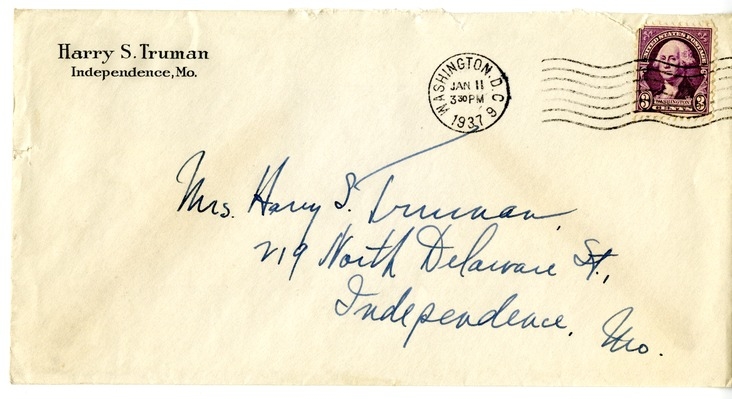 Harry S. Truman
Independence, Mo.
WASHINGTON, D.C. 6
JAN 11
3 30 PM
1937
UNITED STATES POSTAGE
WASHINGTON
3 3
CENTS
Mrs. Harry S. Truman,
219 North Delaware St.,
Independence,
Mo.